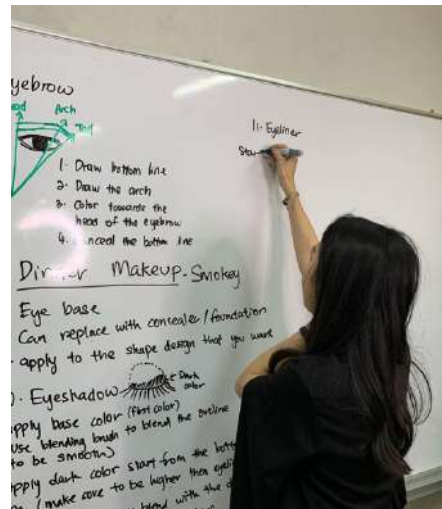 yebrow
Arch
1. Draw bottom line
2. Draw the arch
3. Color towards the
head of the eyebrow
4. Conceal the bottom line
Dinner Makeup - Smokey
Eye base
Can replace with concealer/foundation
apply to the shape design that you want
Eyeshadow
Dark
color
pply base color (first color)
use blending brush to blend the outline
to be smooth)
pply dark color start from the bott
(make sure to be higher then eyeli
blend with the d
11. Eyeliner
Sta